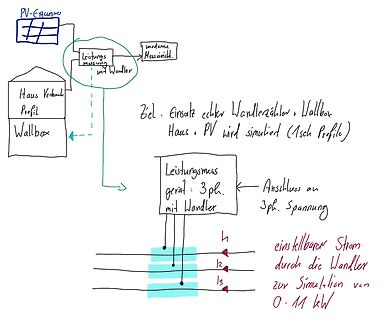 PV-
Leistungs
messung
mit Wandler
moderne
Haus Verbrauchs
Profil
Wallbox
Ziel: Einsatz echter Wandlerzähler + Wallbox
Haus + PV wird simuliert
Leistungsmess
gerät: 3ph.
mit Wandler
Anschluss an
3ph. Spannung
einstellbarer Strom
durch die Wandler
zur Simulation von
0-11 kW
I1
I2
I3